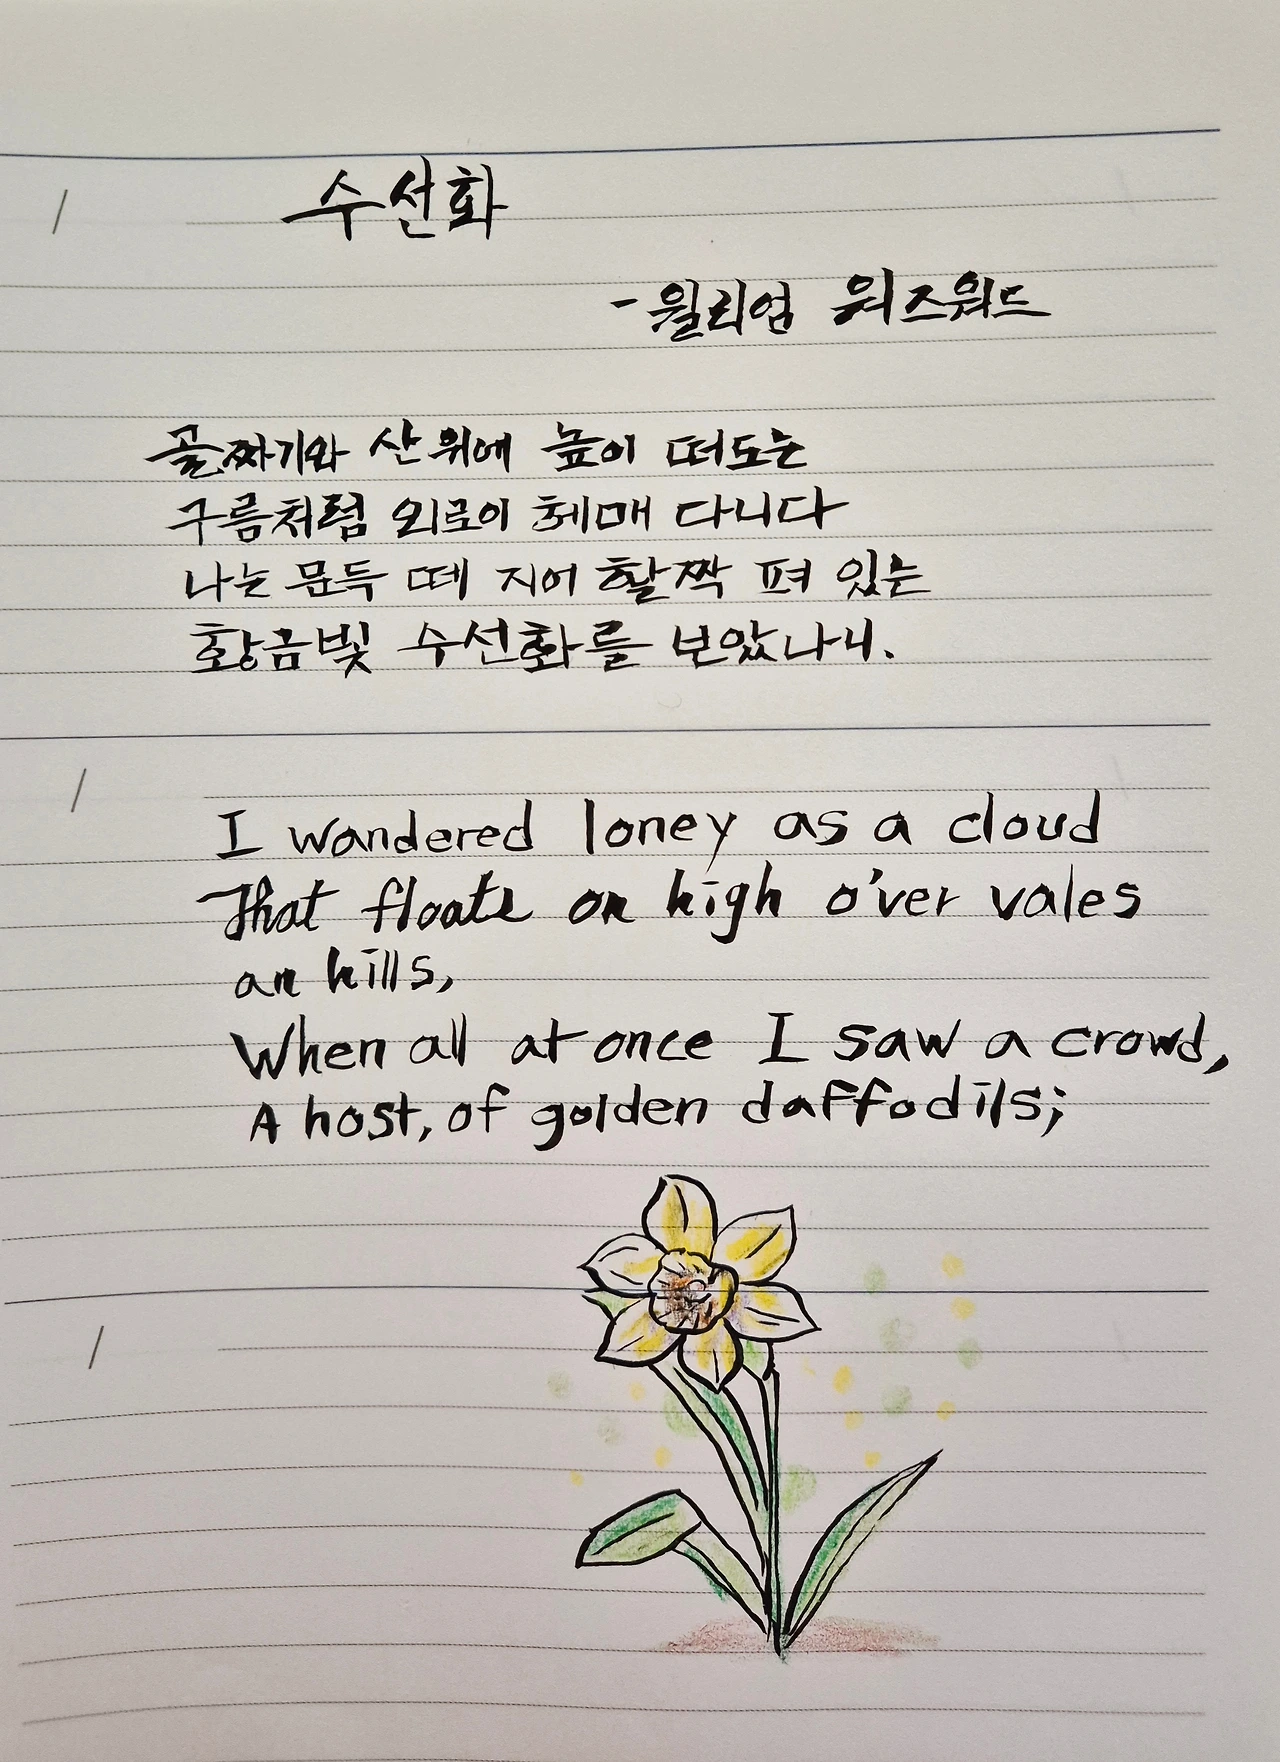 수선화
- 윌리엄 워즈워드
골짜기와 산 위에 높이 떠도는
구름처럼 외로이 헤매 다니다
나는 문득 떼 지어 활짝 펴 있는
황금빛 수선화를 보았나니.
I wandered loney as a cloud
That floats on high o'ver vales
an hills,
When all at once I saw a crowd,
A host, of golden daffodils;